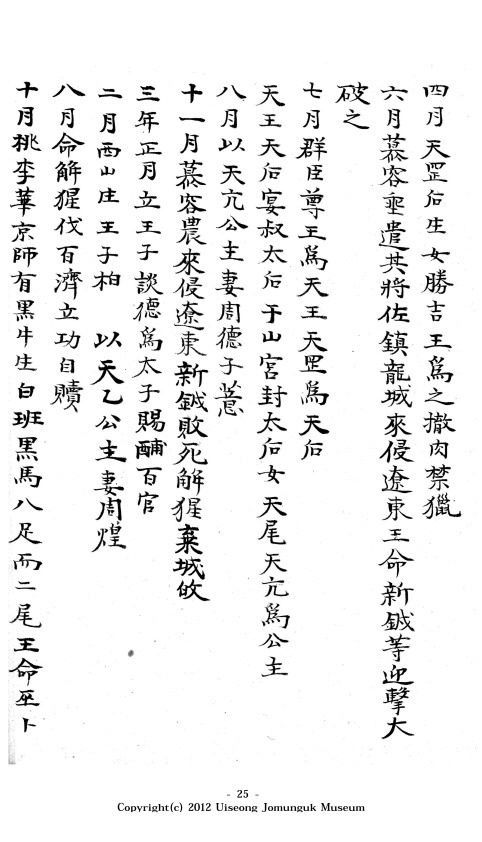 四月天罡后生女勝吉王爲之撤肉禁獵
六月慕容垂遣其將佐鎮龍城來侵遼東王命新鉞等迎擊大
破之
七月群臣尊王爲天王天罡爲天后
天王天后宴叔太后于山宮封太后女天尾天亢爲公主
八月以天亢公主妻周德子薏
十一月慕容農來侵遼東新鉞敗死解猩棄城攸
三年正月立王子談德爲太子賜酺百官
二月西山庄王子柏 以天乙公主妻周煌
八月命解猩伐百濟立功自贖
十月桃李華京師有黑牛生白班黑馬八足而二尾王命巫卜
- 25 -
Copyright(c) 2012 Uiseong Jomunguk Museum